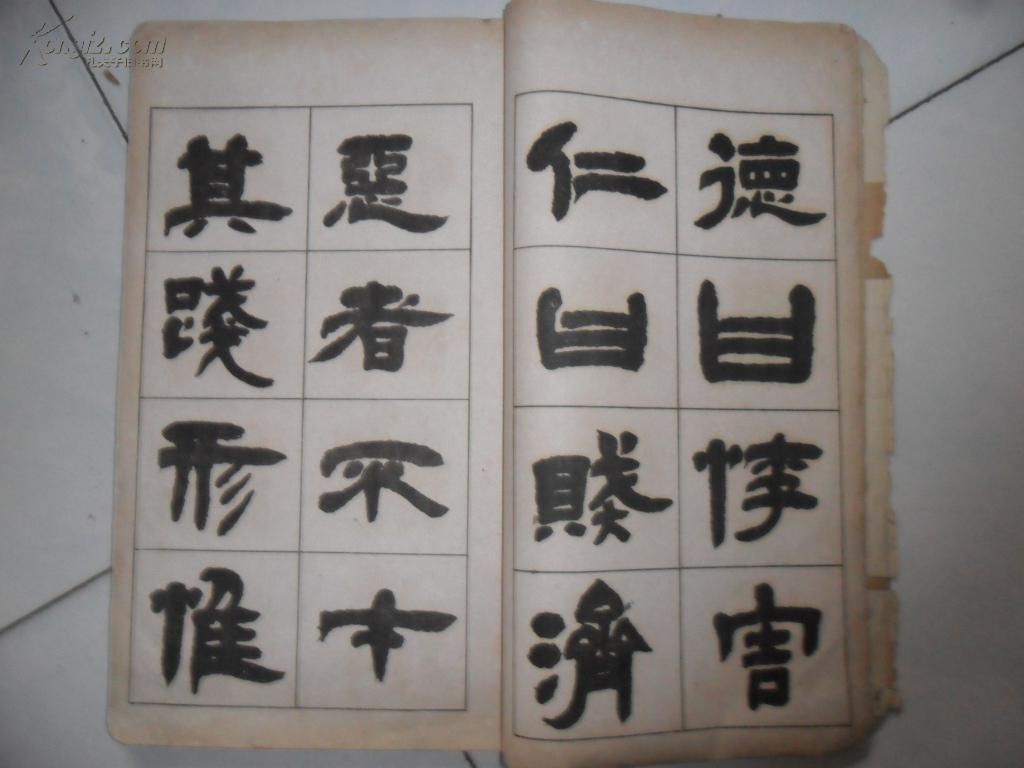 德曰悖害
仁曰賊濟
惡者不才
其踐形惟
Kongfz.com
孔夫子旧书网